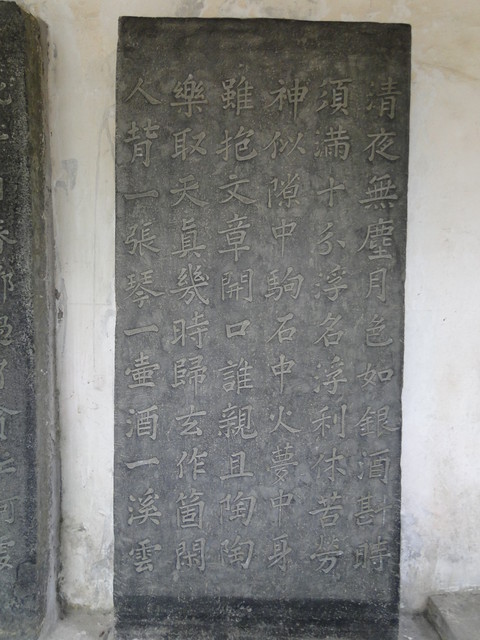 清夜無塵月色如銀酒斟時
須滿十分浮名浮利休苦勞
神似隙中駒石中火夢中身
雖抱文章開口誰親且陶陶
樂取天眞幾時歸去作箇閑
人背一張琴一壺酒一溪雲